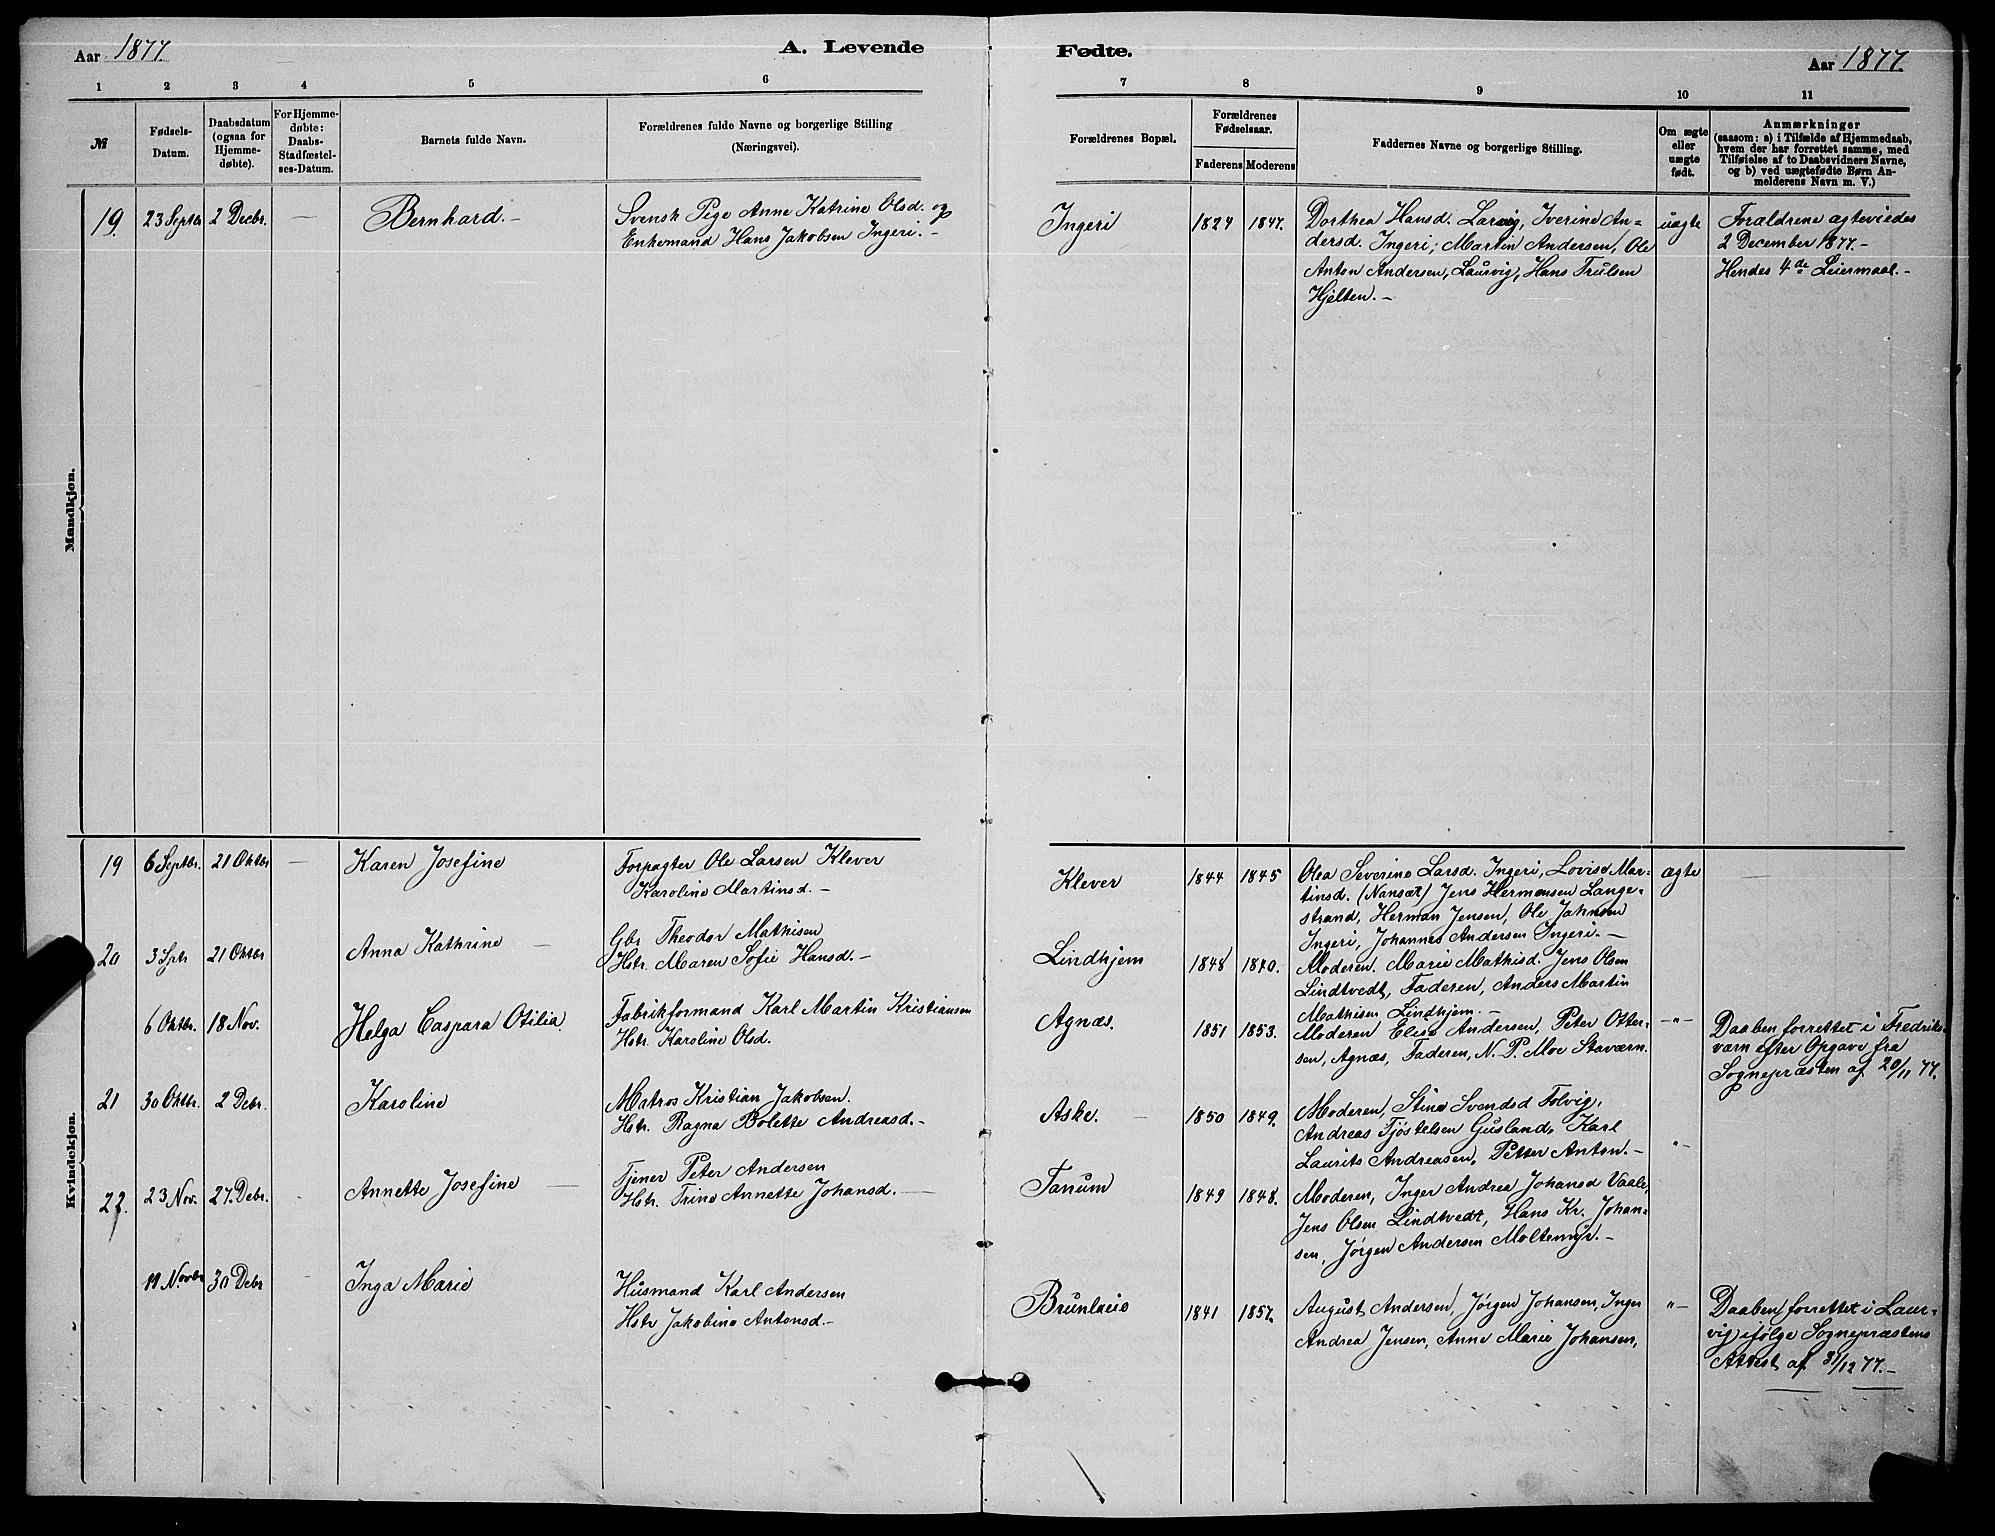 Aar 1877.
A. Levende
Fødte.
Aar 1877.
1 2 3 4 5 6 7 8 9 10 11
№
Fødsels-
Datum.
Daabsdatum
(ogsaa for
Hjemme-
døbte).
For Hjemme-
døbte:
Daabs-
Stadfæstel-
ses-Datum.
Barnets fulde Navn.
Forældrenes fulde Navne og borgerlige Stilling
(Næringsvei).
Forældrenes Bopæl.
Forældrenes
Fødselsaar.
Faderens Moderens
Faddernes Navne og borgerlige Stilling.
Om ægte
eller
uægte
født.
Anmærkninger
(saasom: a) i Tilfælde af Hjemmedaab,
hvem der har forrettet samme, med
Tilføielse af to Daabsvidners Navne,
og b) ved uægtefødte Børn An-
melderens Navn m. V.)
Mandkjøn.
19. 23 Septbr 2 Decbr. — Bernhard. —
Svensk Pige Anne Katrine Olsd. og
Enkemand Hans Jakobsen Ingeri. —
Ingeri 1824 1847.
Dorthea Hansd. Larvig, Iverine An-
dersd. Ingeri; Martin Andersen, Ole
Anton Andersen, Laurvig, Hans Trulsen
Hjelten. —
uægte
Forældrene ægteviedes
2 December 1877. —
Hendes 4de Leiermaal. —
Kvindekjøn.
19 6 Septbr. 21 Oktbr — Karen Josefine
Forpagter Ole Larsen Klever
Karoline Martinsd. —
Klever 1844 1845
Olea Severine Larsd. Ingeri, Lovise Mar-
tinsd. (Nanset) Jens Hermansen Lange-
strand, Herman Jensen, Ole Jahnsen
Ingeri, Johannes Andersen Ingeri. —
ægte —
20 3 Sptr 21 Oktbr Anna Kathrine —
Gbr Theodor Mathisen
Hstr. Maren Sofie Hansd. —
Lindhjem 1848 1840.
Moderen. Marie Mathisd. Jens Olsen
Lindtvedt, Faderen, Anders Martin
Mathisen Lindhjem. —
6 Oktbr. 18 Nov. Helga Caspara Otilia
Fabrikformand Karl Martin Kristiansen
Hstr. Karoline Olsd.
Agnæs. 1851 1853.
Moderen Elise Andersen, Peter Otter-
sen, Agnæs, Faderen, N. P. Moe Staværn.
—"—
Daaben forrettet i Fredriks-
værn efter Opgave fra
Sognepræsten af 20/11 77.
21 30 Oktbr. 2 Debr. Karoline
Matros Kristian Jakobsen.
Hstr. Ragna Bolette Andreasd. —
Aske. — 1850 1849.
Moderen, Stine Svendsd Tolvig,
Andreas Tjøstelsen Gusland, Karl
Laurits Andreasen, Petter Anton. —
"—
22. 23 Nov. 27. Debr. - Annette Josefine —
Tjener Peter Andersen
Hstr. Trine Annette Johansd. —
Tanum 1849 1848.
Moderen, Inger Andrea Johansd Vaale,
Jens Olsen Lindtvedt, Hans Kr. Johan-
sen, Jørgen Andersen Moltemyr. —
11 Novbr 30 Debr - Inga Marie
Husmand Karl Andersen
Hstr Jakobine Antonsd. —
Brunlaeie 1841 1857.
August Andersen, Jørgen Johansen, Inger
Andrea Jensen, Anne Marie Johansen,
"—
Daaben forrettet i Laur-
vig ifølge Sognepræstens
Attest af 31/12 77. —